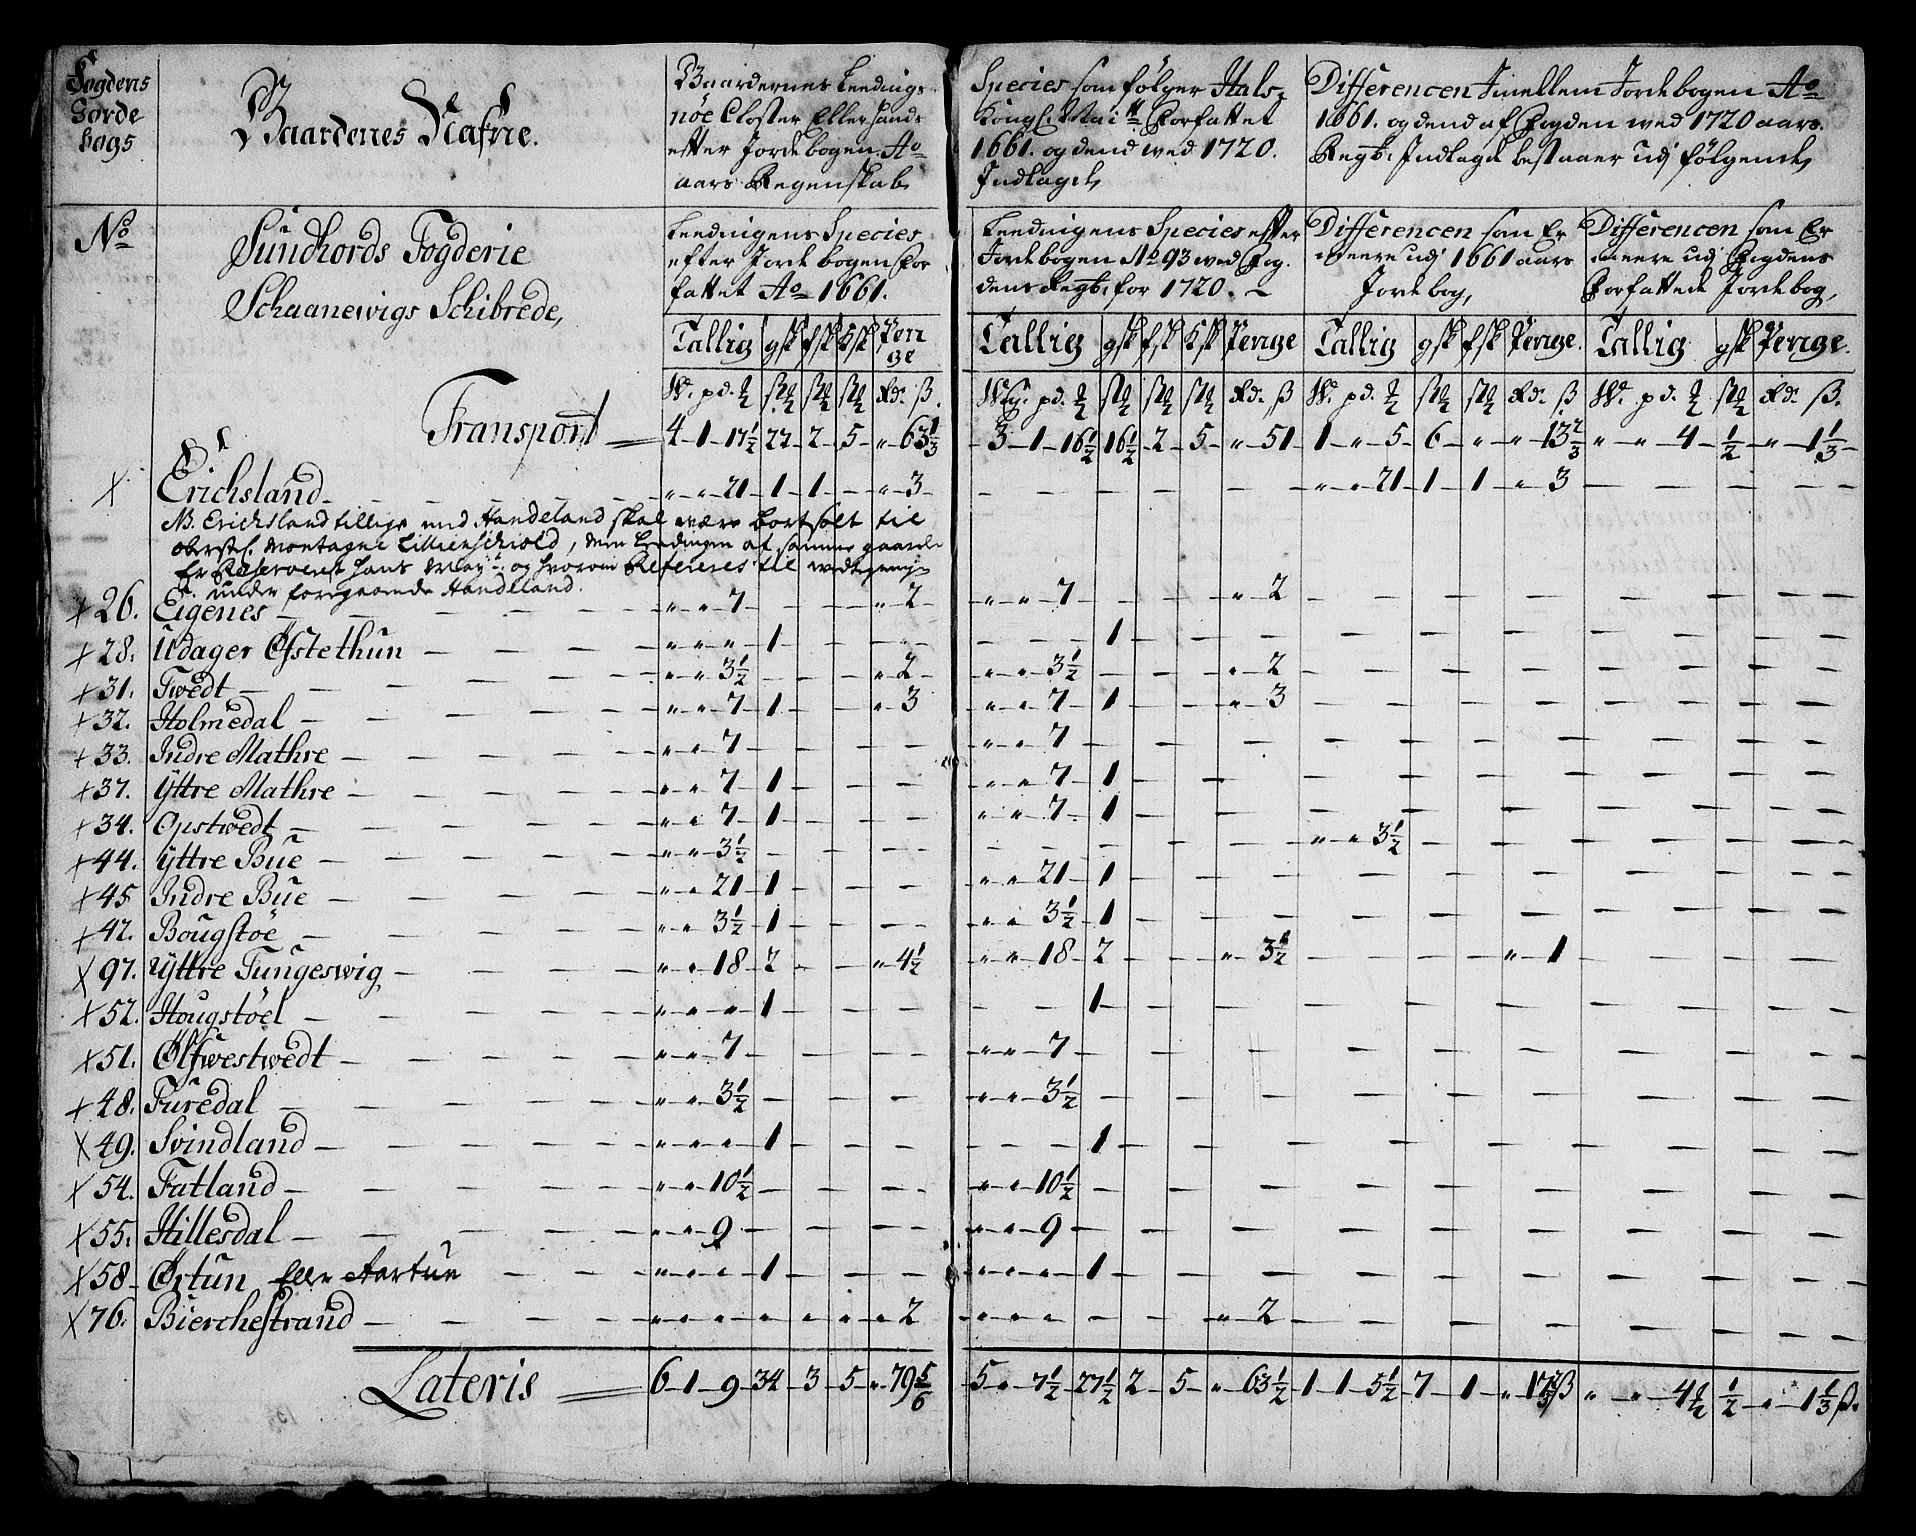 Fogdens Jorde bogs
Gaardenes Nafne.
Gaardernes Leedings
nöe Closter Eller hands
efter Jordebogen Ao
aars Regenskab,
Species som følger Hals-
Kongl. Mai tt forfattet
1661. og dend wed 1720.
Indlagde,
Differencen Imellem Jordebogen Ao
1661. og dend af Fogden wed 1720 aars
Regsb: Indlagde bestaaer udj følgende,
No
Sundhords Fogderie
Schaanewigs Schibrede,
Leedningens Species
efter Jordebogen for
fattet Ao 1661.
Leedningens Species efter
Jordebogen No 93 wed Fog
dens Regsb: for 1720.
Differencen som Er
meere udj 1661 aars
Jordebog,
Differencen som Er
meere udj Fogdens
Forfattede Jordebog,
Tallig gsk fsk Ksk Pen ge Tallig gsk fsk Ksk Penge Tallig gsk fsk Penge Tallig gsk Penge
Transport 4 - 1 - 17½ 22 - 2 - 5 - " 63⅓ 3 - 1 - 16½ 16½ - 2 - 5 - " 51 1 - " 5 - 6 - " - " 13⅔ " - " 4 - ½ - " - 1⅓
X Erichsland " - " 21 - 1 - 1 - - " 3 - - - - - - " - " 21 - 1 - 1 - " 3 - - -
NB. Erichsland tillige med Handeland skal være bortsolt til
oberstl. Montagne Lillienschiold, men Leedingen af samme gaarde
Er Reserveret hans May: og hvorom Refereres til
under foregaaende Handeland.
+ 26. Eigenes " " 7 - - - " 2 " " 7 - - - " 2
+ 28. Udager Østethun " " " 1 - - - - - - 1
+ 31. Twedt " " 3½ - - - " 2 " " 3½ - - - " 2
+ 32. Holmedal " " 7 1 - - " 3 " " 7 1 - - " 3
+ 33. Indre Mathre " " 7 - - - - " " 7
+ 37. Yttre Mathre " " 7 1 - - - " " 7 1
+ 34. Opstwedt " " 7 1 - - - " " 7 1
+ 44. Yttre Bue " " 3½ - - - - - - - " " 3½
+ 45 Indre Bue " " 21 1 - - - " " 21 1
+ 47. Bougstöe " " 3½ 1 - - - " " 3½ 1
X 97. Yttre Tungeswig " " 18 2 - - " 4½ " " 18 2 - - " 3½ - - - " 1
X 52. Hougstöel " " " 1 - - - - - 1
X 51. Ølfwestwedt " " 7 - - - - " " 7
+ 48. Furedal " " 3½ - - - - " " 3½
X 49. Svindland " " " 1 - - - - - 1
X 54. Fatland " " 10½ - - - - " " 10½
X 55. Hillesdal " " 9 - - - - " " 9
X 58 Ørtun Eller Aartun " " " 1 - - - " " " 1
X 76. Bierchestrand " " " " " " " 2 " " " - - - " 2
Lateris 6 - 1 - 9 34 - 3 - 5 - " 79⅚ 5 " 7½ 27½ 2 - 5 - " 63½ 1 1 5½ 7 - 1 - " 17⅔ß " - " - 4½ ½ - " - 1⅓ß.